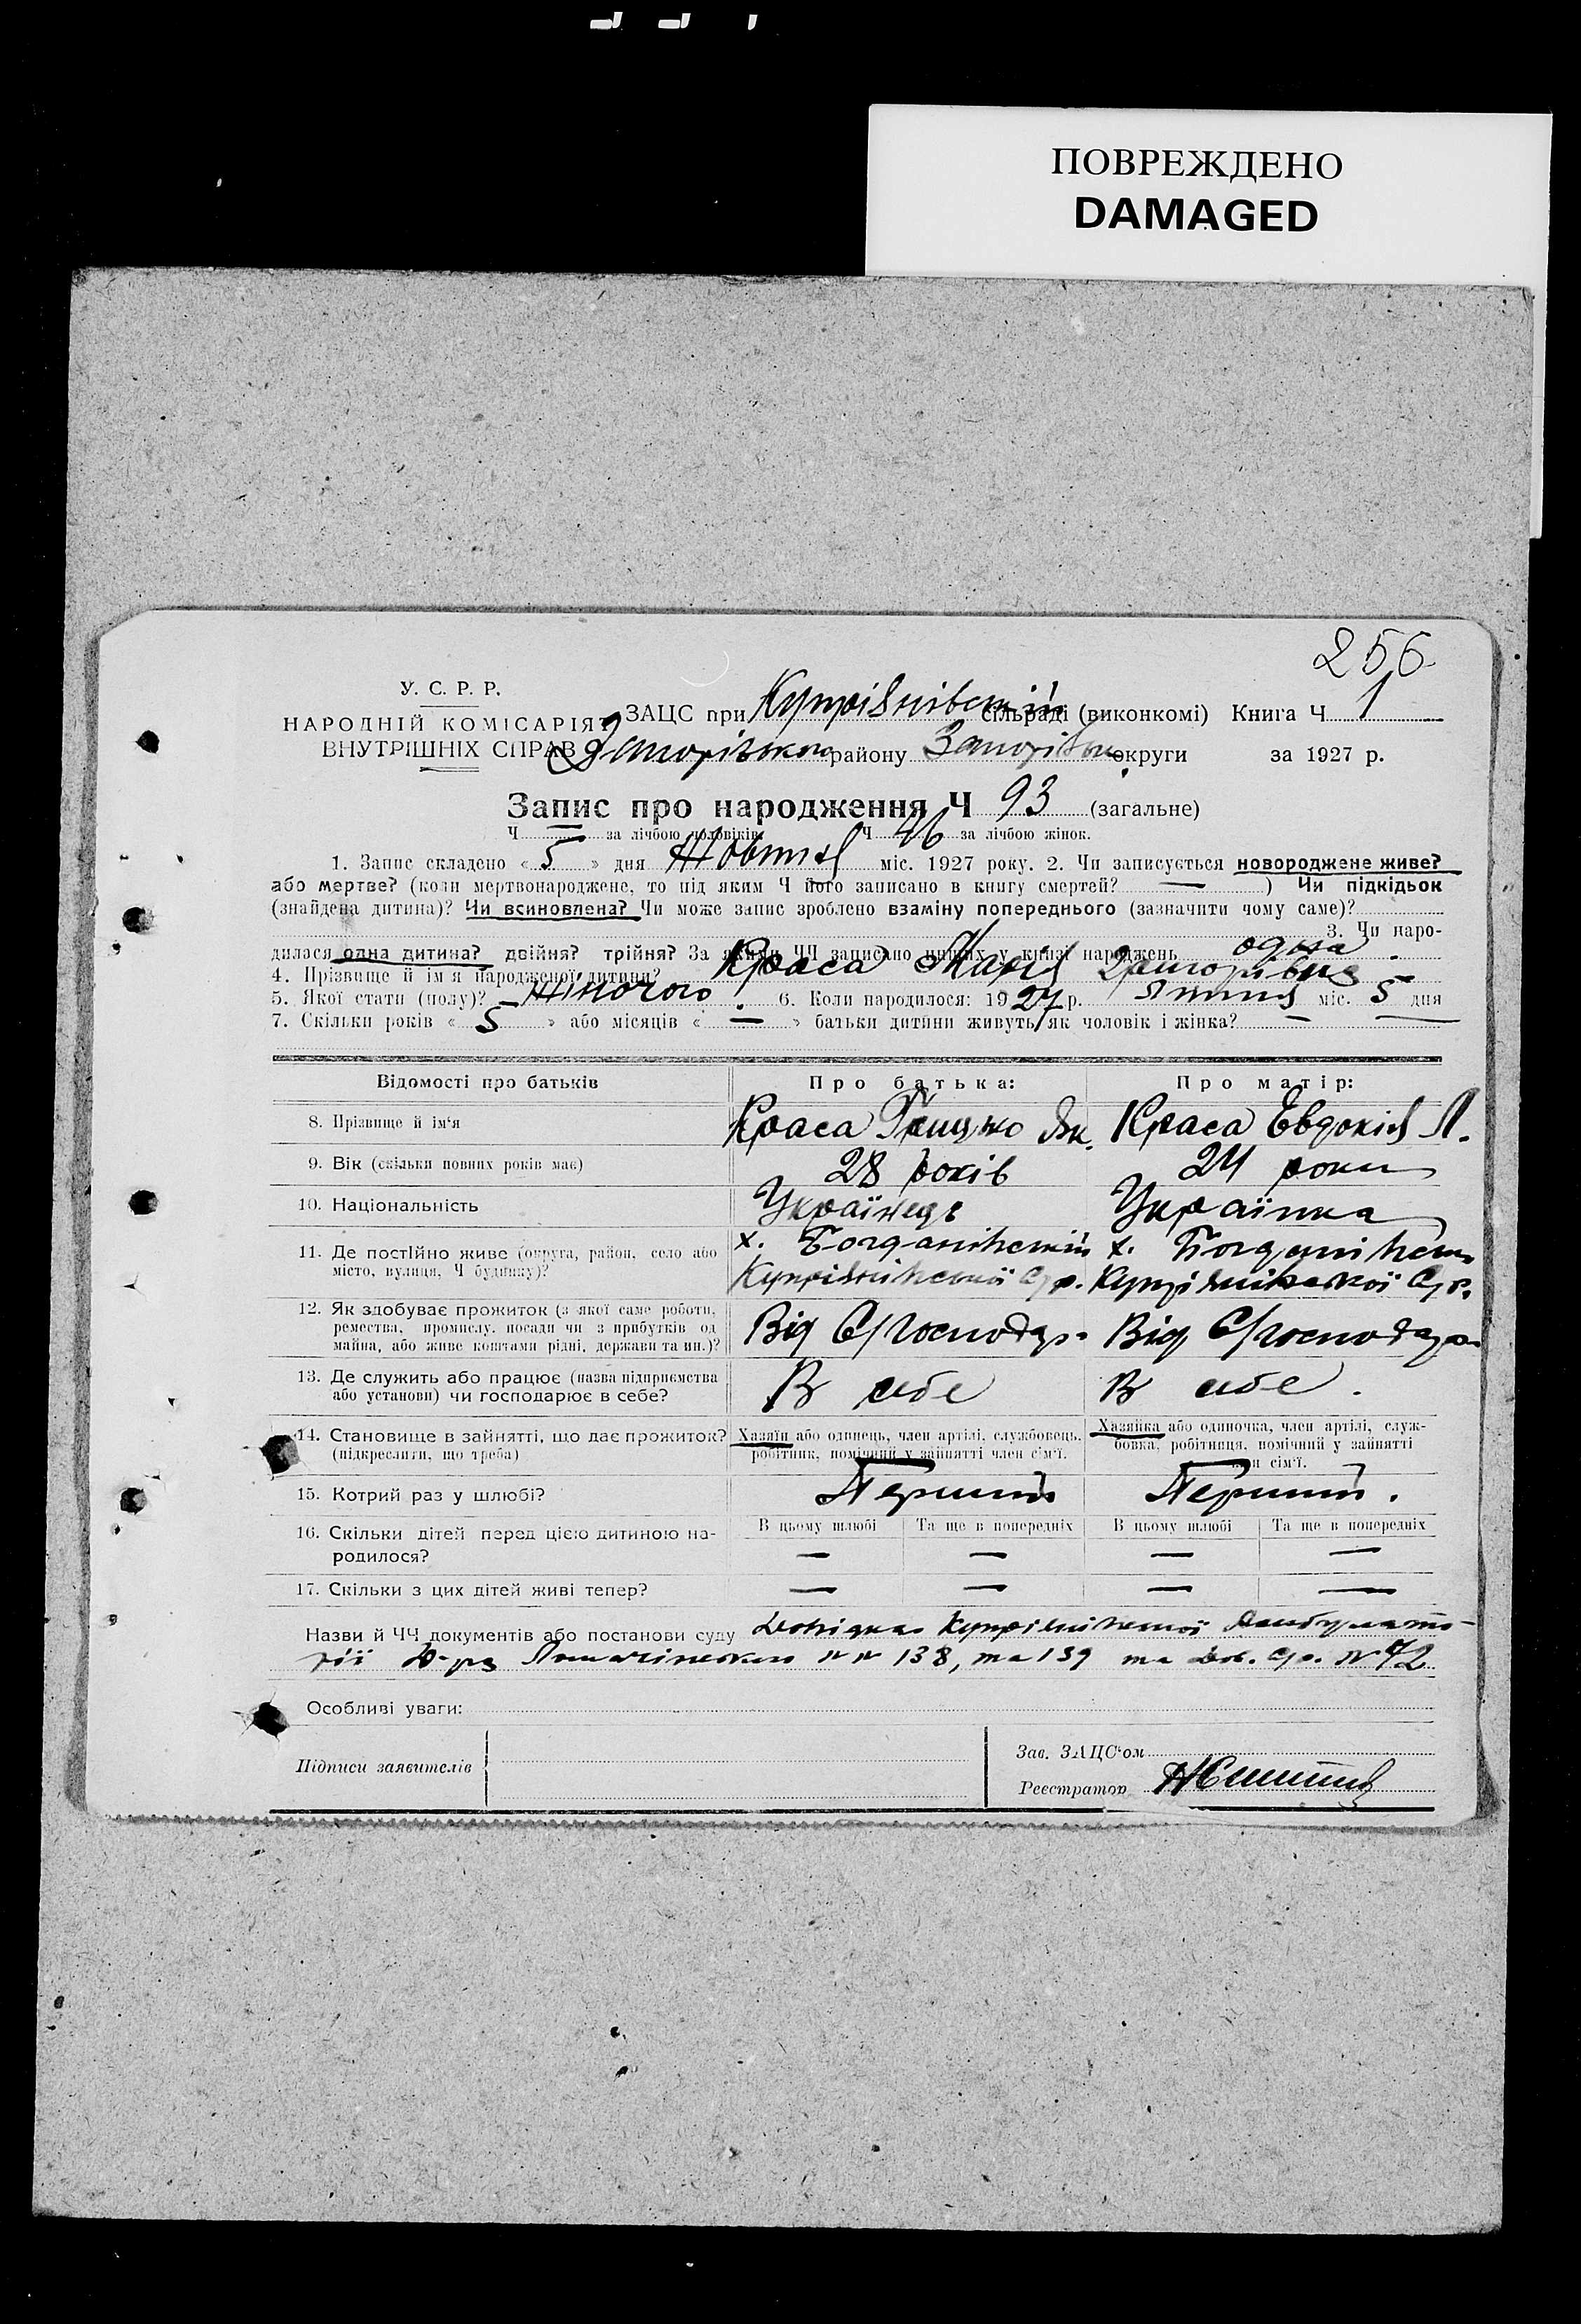 ПОВРЕЖДЕНО
DAMAGED
256
У. С. Р. Р.
НАРОДНІЙ КОМІСАРІЯТ
ВНУТРІШНІХ СПРАВ
ЗАЦС при Купріянівській сільраді (виконкомі) Книга Ч 1
району округи за 1927 р.
Запис про народження Ч 93 (загальне)
Ч — за лічбою чоловіків. Ч 46 за лічбою жінок.
1. Запис складено « 5 » дня Жовтня міс. 1927 року. 2. Чи записується новороджене живе?
або мертве? (коли мертвонароджене, то під яким Ч його записано в книгу смертей? — ) Чи підкідьок
(знайдена дитина)? Чи всиновлена? Чи може запис зроблено взаміну попереднього (зазначити чому саме)?
3. Чи наро-
дилося одна дитина? двійня? трійня? За якими ЧЧ записано инших у книзі народжень одна
4. Прізвище й ім'я народженої дитини? Краса Марія Григорівна
5. Якої стати (полу)? Жіночого. 6. Коли народилося: 1927 р. Липня міс. 5 дня
7. Скільки років « 5 » або місяців « — » батьки дитини живуть як чоловік і жінка? —
Відомості про батьків
Про батька:
Про матір:
8. Прізвище й ім'я Краса Грицько Як. Краса Евдокія Л.
9. Вік (скільки повних років має) 28 років 24 роки
10. Національність Українець Українка
11. Де постійно живе (округа, район, село або місто, вулиця, Ч будинку)?
х. х.
Купріянівської С/р. Купріянівської С/р.
12. Як здобуває прожиток (з якої саме роботи,
ремества, промислу, посади чи з прибутків од
майна, або живе коштами рідні, держави та ин.)?
Від С/господар. Від С/господар.
13. Де служить або працює (назва підприємства
або установи) чи господарює в себе?
В себе В себе.
14. Становище в зайнятті, що дає прожиток?
(підкреслити, що треба)
Хазяїн або одинець, член артілі, службовець,
робітник, помічний у зайнятті член сім'ї.
Хазяйка або одиночка, член артілі, служ-
бовка, робітниця, помічний у зайнятті
член сім'ї.
15. Котрий раз у шлюбі? Перший Перший.
16. Скільки дітей перед цією дитиною на-
родилося?
В цьому шлюбі Та ще в попередніх В цьому шлюбі Та ще в попередніх
— — — —
17. Скільки з цих дітей живі тепер? — — — —
Назви й ЧЧ документів або постанови суду Довідка Купріянівської Амбулато-
рії №№ 138, та 139 та Дов. С/р. № 42
Особливі уваги:
Підписи заявителів
Зав. ЗАЦС'ом
Реєстратор